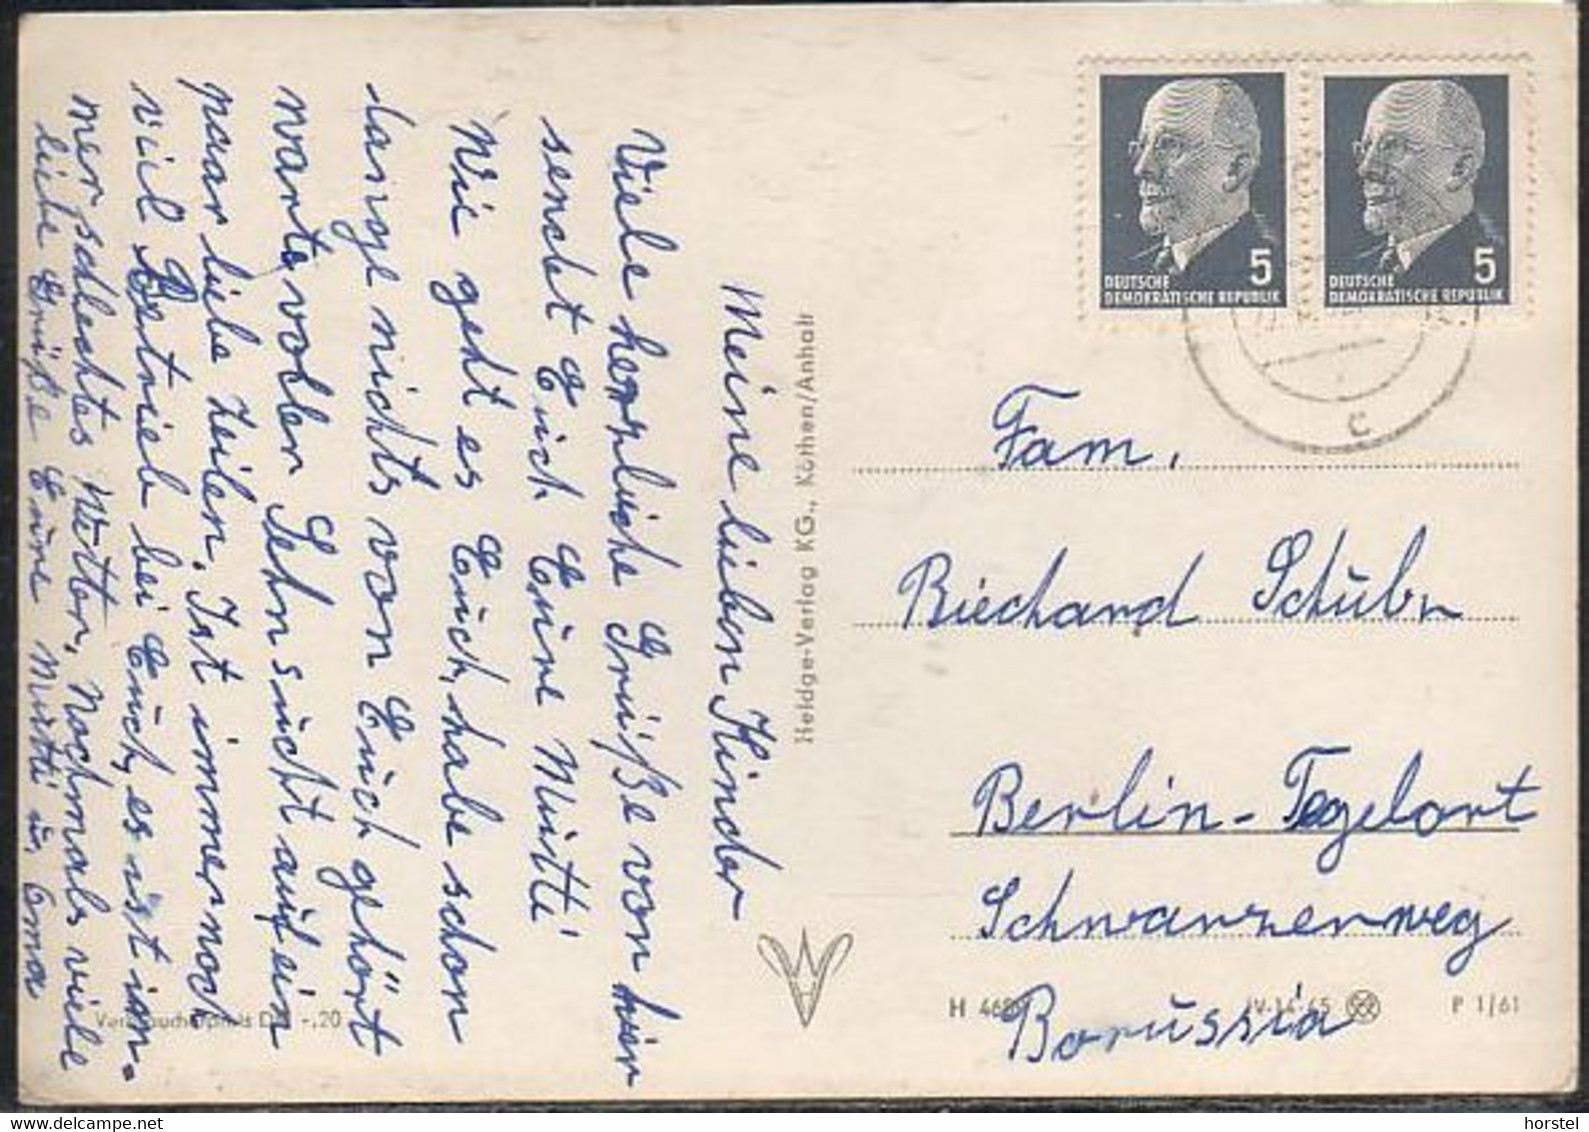 Meine lieben Kinder
Viele herzliche Grüße von hier
sendet Euch Eure Mutti
Wie geht es Euch, habe schon
lange nichts von Euch gehört
warte voller Sehnsucht auf ein
paar liebe Zeilen. Ist immer noch
viel Betrieb bei Euch, es ist im-
mer schlechtes Wetter, Nochmals viele
liebe Grüße Eure Mutti u. Oma
Heldge-Verlag KG., Köthen/Anhalt
DEUTSCHE
DEMOKRATISCHE REPUBLIK
5
DEUTSCHE
DEMOKRATISCHE REPUBLIK
5
c
Fam.
Riechard Schübn
Berlin-Tegelort
Schwarzerweg
Borussia
H 468
IV-14-45
P 1/61
Verbraucherpreis DM -,20
horstel
www.delcampe.net